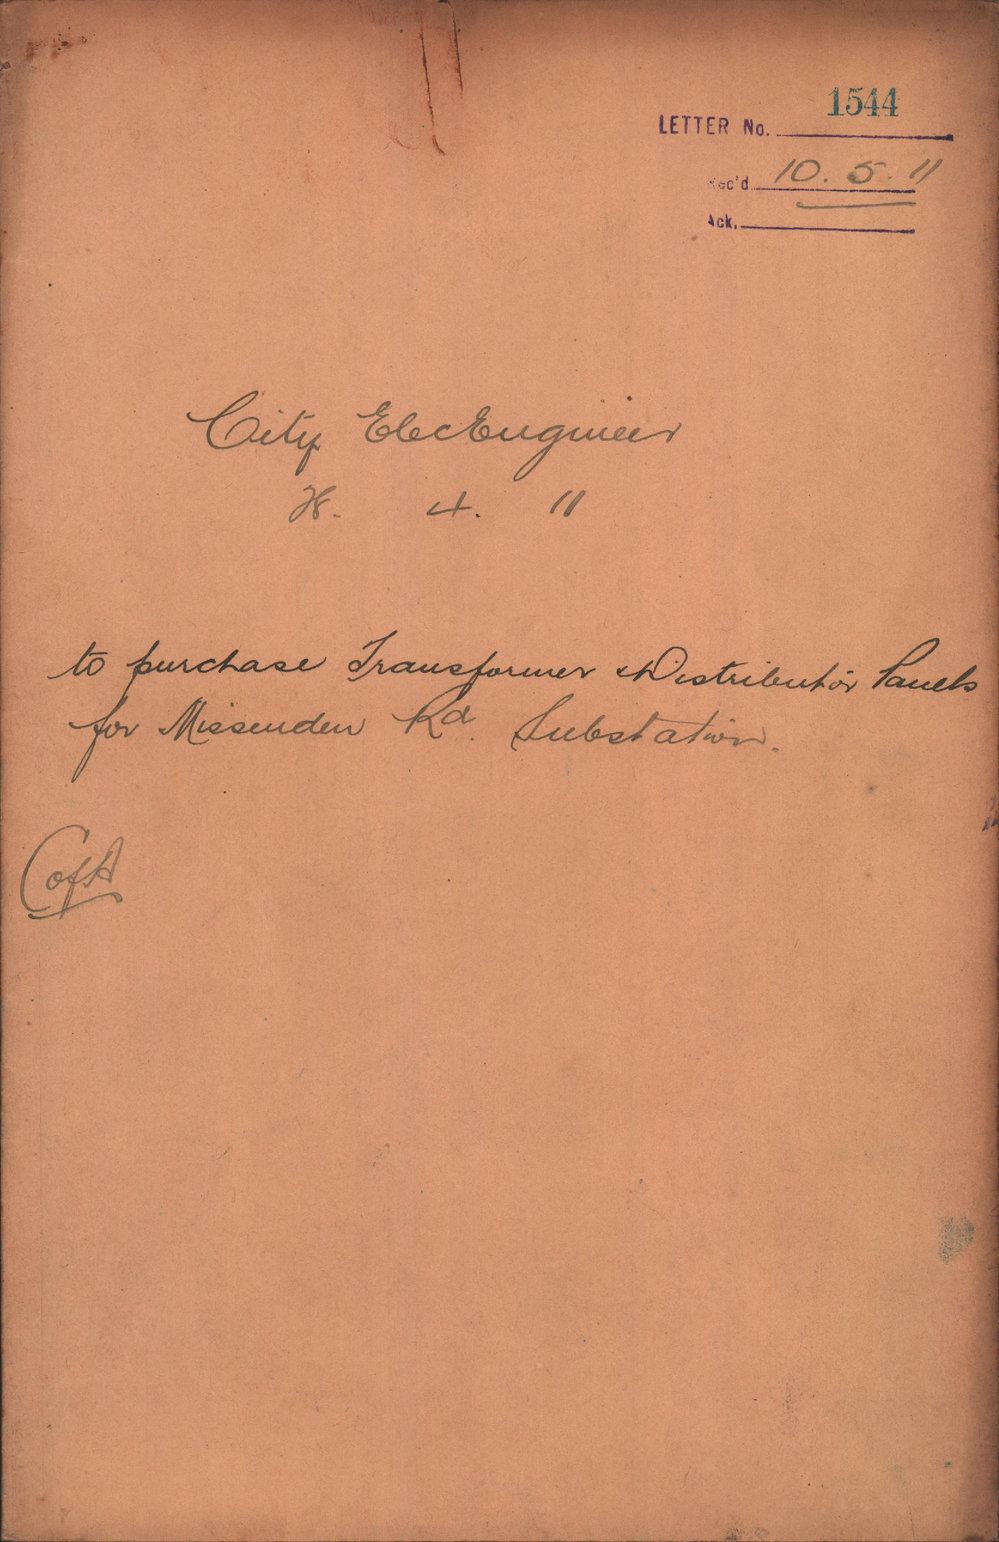 1544
LETTER No.
Rec'd 10. 5. 11
Ack.
City Elec Engineer
4. 11
to purchase Transformer & Distributor Panels
for Missenden Rd. Substation.
C of A